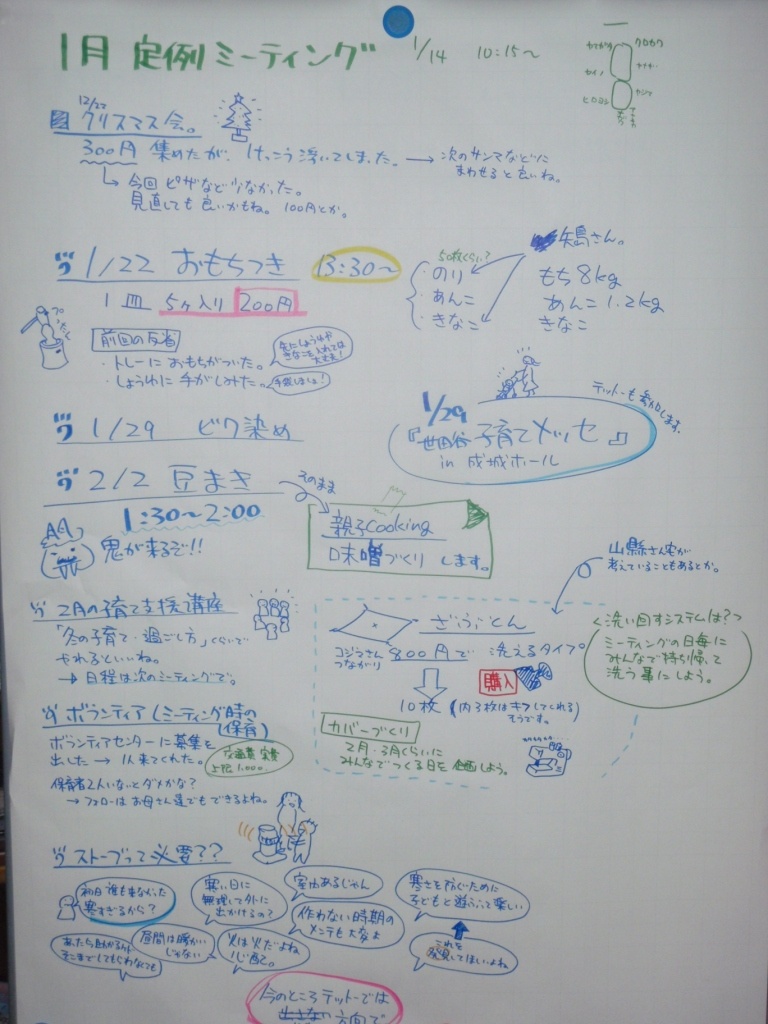 1月 定例ミーティング 1/14 10:15～
クロカワ
ヒロヨシ
12/22
クリスマス会。
300円 集めたが、けっこう浮いてしまった。→ 次のサンマなどに
まわせると良いね。
今回ピザなど少なかった。
見直しても良いかもね。100円とか。
1/22 おもちつき 13:30～
1皿 5ヶ入り 200円
50枚くらい?
・のり
・あんこ
・きなこ
矢島さん。
もち8kg
あんこ1.2kg
きなこ
前回の反省
・トレーにおもちがついた。
先にしょうゆや
きなこを入れては
大丈夫!
・しょうゆに手がしみた。
手袋しましょ!
1/29 ビワ染め
1/29
『世田谷子育てメッセ』
in 成城ホール
テットーも参加します。
2/2 豆まき
そのまま
1:30～2:00
鬼が来るぞ!!
親子cooking
味噌づくりします。
2月の子育て支援講座
「冬の子育て・過ごし方」くらいで
やれるといいね。
→ 日程は次のミーティングで。
山縣さん宅が
考えていることもあるとか。
ざぶとん
コジマさん
つながり
800円で 洗えるタイプ。
購入
10枚 (内3枚はキフしてくれる)
そうです。
カバーづくり
2月・3月くらいに
みんなでつくる日を企画しよう。
<洗い回すシステムは?>
ミーティングの日毎に
みんなで持ち帰って
洗う事にしよう。
ボランティア(ミーティング時の
保育)
ボランティアセンターに募集を
出した → 1人来てくれた。
交通費 実費
上限1.000-
保育者2人いないとダメかな?
→ フォローはお母さん達でもできるよね。
ストーブって必要??
初日誰も来なかった
寒すぎるから?
寒い日に
無理して外に
出かけるの?
室内あるじゃん
寒さを防ぐために
子どもと遊ぶって楽しい
作わない時期の
メンテも大変よ
あったら助かるけど
そこまでしてもらわなくても
昼間は暖かい
じゃない
火は火だよね
心配。
これを
発見してほしいよね
今のところテットーでは
出さない方向で